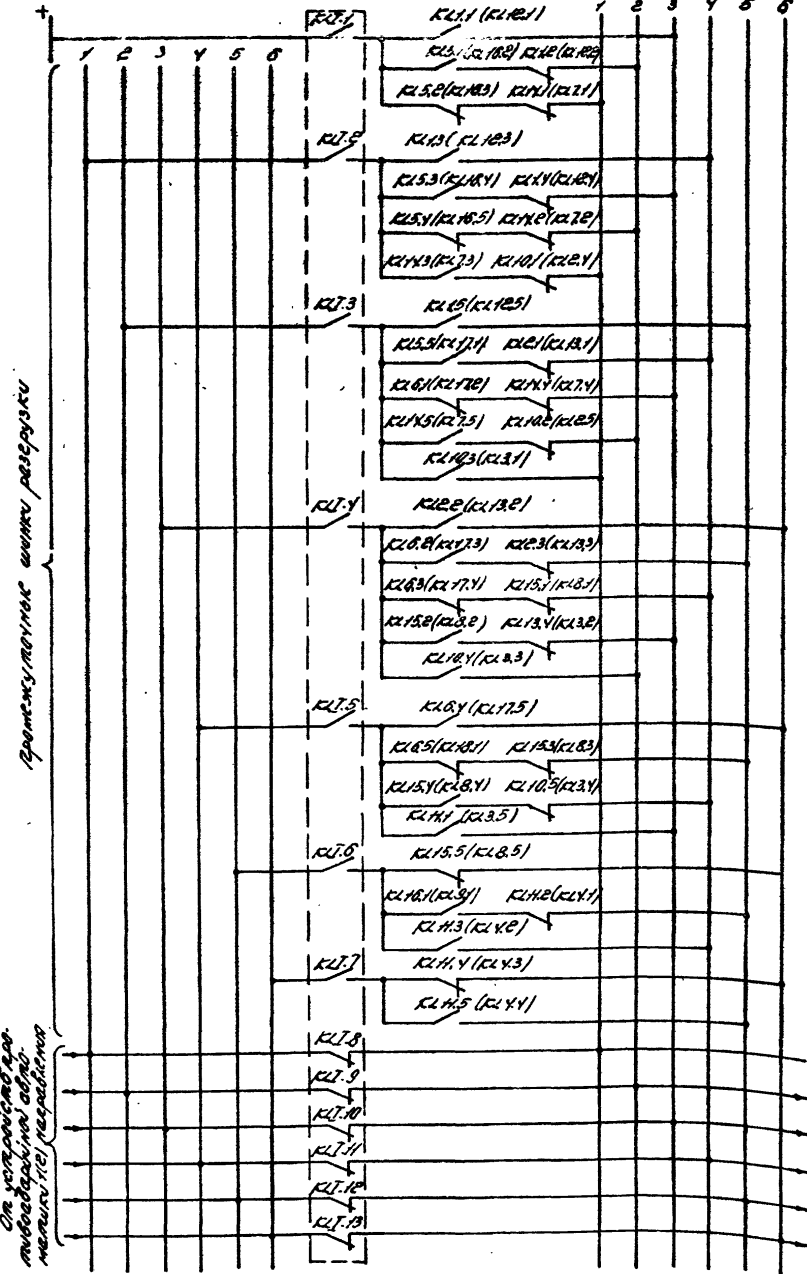 +
KLT.1
KL1.1 (KL12.1)
1 2 3 4 5 6
1 2 3 4 5 6
KL5.1(KL16.2) KL1.2(KL12.2)
KL5.2(KL16.3) KL14.1(KL7.1)
KLT.2
KL1.3 (KL12.3)
KL5.3(KL16.4) KL1.4(KL12.4)
KL5.4(KL16.5) KL14.2(KL7.2)
KL14.3(KL7.3) KL10.1(KL2.4)
KLT.3
KL1.5(KL12.5)
KL5.5(KL17.1) KL2.1(KL13.1)
KL6.1(KL17.2) KL14.4(KL7.4)
KL14.5(KL7.5) KL10.2(KL2.5)
KL10.3(KL3.1)
KLT.4
KL2.2(KL13.2)
KL6.2(KL17.3) KL2.3(KL13.3)
KL6.3(KL17.4) KL15.1(KL8.1)
KL15.2(KL8.2) KL13.4(KL3.2)
KL10.4(KL3.3)
KLT.5
KL6.4 (KL17.5)
KL6.5(KL18.1) KL15.3(KL8.3)
KL15.4(KL8.4) KL10.5(KL3.4)
KL11.1 (KL3.5)
KLT.6
KL15.5(KL8.5)
KL16.1(KL9.1) KL11.2(KL4.1)
KL11.3(KL4.2)
KLT.7
KL11.4 (KL4.3)
KL11.5 (KL4.4)
KLT.8
KLT.9
KLT.10
KLT.11
KLT.12
KLT.13
Промежуточные шинки разгрузки
От устройств про-
тивоаварийной авто-
матики 1(2) направления